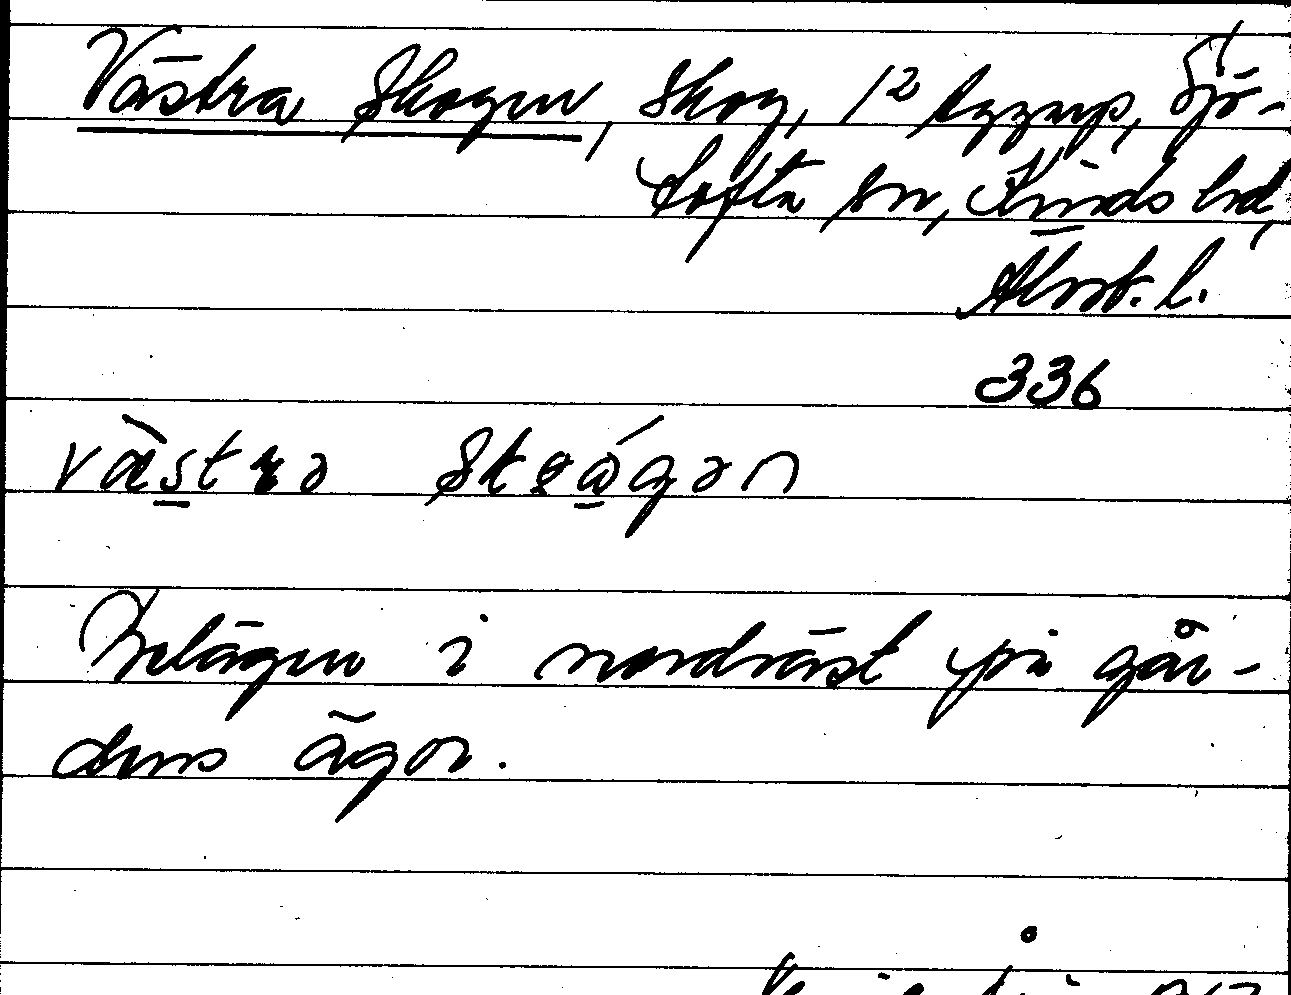 Västra Skogen, Skog, 1² Ryggarp, Sjö-
tofta sn, Kinds hd,
Älvsb. l.
336
Belägen i nordväst på går-
dens ägor.